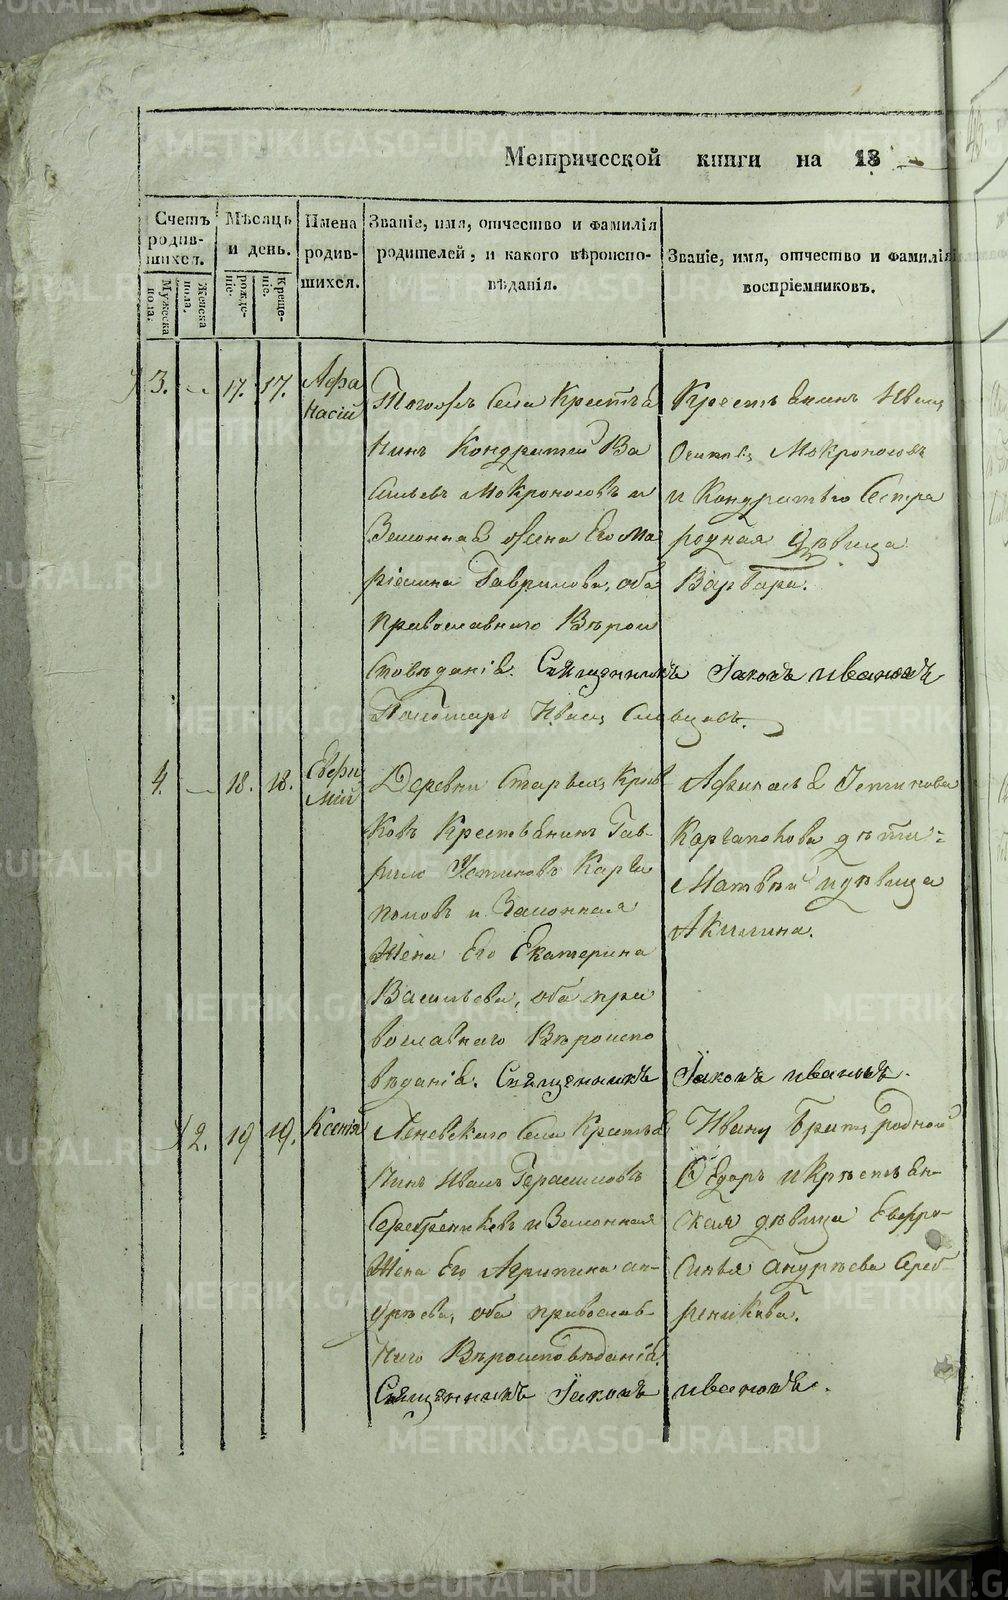 Метрической книги на 18
Счетъ родив-шихся.
Мужеска пола.
Женска пола.
Мѣсяцъ и день.
рожде-ніе.
Креще-ніе.
Имена родив-шихся.
Званіе, имя, отчество и фамилія
родителей, и какого вѣроиспо-
вѣданія.
Званіе, имя, отчество и фамилія
воспріемниковъ.
3.
17.
17.
Афа
насій
Тогожъ Села Крестья
нинъ Кондратей Ва
сильевъ Мокроносовъ и
Законная жена Его Ма
ріамна Гаврилова, оба
православнаго Вѣрои
сповѣданія. Священникъ Іаковъ Ивановъ
Пономарь Иванъ Славцовъ.
Крестьянинъ Иванъ
Осиповъ Мокроносовъ
и Кондратью Сестра
родная дѣвица
Варвара.
4.
18.
18.
Евфи
мій
Деревни Старыхъ Крив
ковъ Крестьянинъ Гав-
рило Устиновъ Карга
половъ и Законная
Жена Его Екатерина
Васильева, оба пра
вославнаго Вѣроиспо
вѣданія. Священникъ Іаковъ Ивановъ.
Каргаполова дѣти:
Матвѣй и дѣвица
Акилина.
2.
19
19.
Ксенія
Леневскаго Села Крестья
нинъ Иванъ Герасимовъ
Серебрениковъ и Законная
Жена Его Агрипина Ан-
дрѣева, оба православ-
наго Вѣроисповѣданія.
Священникъ Іаковъ Ивановъ.
Ивану Братъ Родной
Ѳедоръ и Крестьян-
ская дѣвица Евфро-
синья Андрѣева Сереб-
реникова.
METRIKI.GASO-URAL.RU